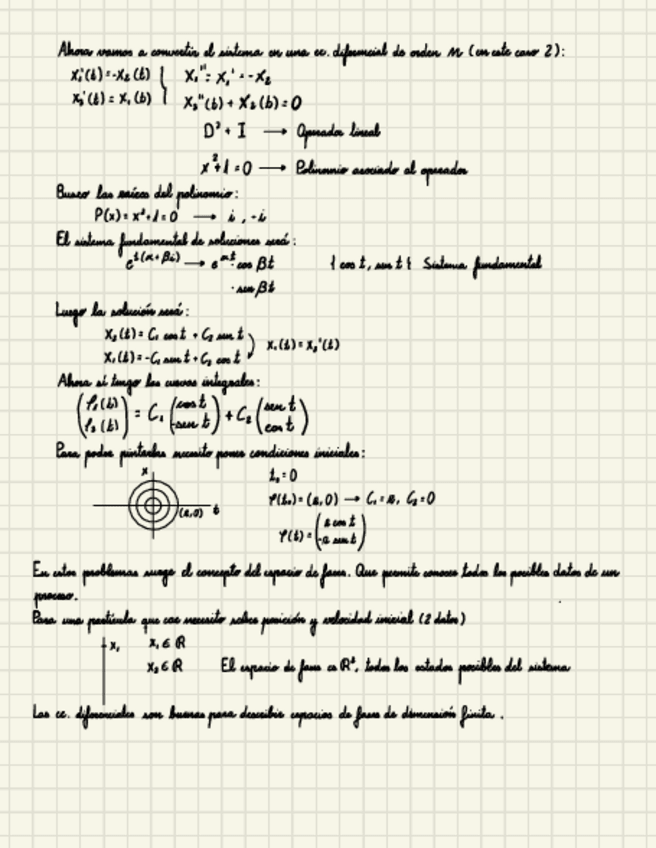 Ahora vamos a convertir el sistema en una ec. diferencial de orden n (en este caso 2):
x₁'(t) = -x₂(t) } x₂'' = x₁' = -x₂
x₂'(t) = x₁(t) x₂''(t) + x₂(t) = 0
D² + I → Operador lineal
x² + 1 = 0 → Polinomio asociado al operador
Busco las raíces del polinomio:
P(x) = x² + 1 = 0 → i, -i
El sistema fundamental de soluciones será:
e^{t(α+βi)} → e^{αt} · cos βt {cos t, sen t} Sistema fundamental
· sen βt
Luego la solución será:
x₂(t) = C₁ cos t + C₂ sen t
x₁(t) = -C₁ sen t + C₂ cos t x₁(t) = x₂'(t)
Ahora sí tengo las curvas integrales:
(φ₁(t)) = C₁ (cos t) + C₂ (sen t)
(φ₂(t)) (-sen t) (cos t)
Para poder pintarlas necesito poner condiciones iniciales:
x t₀ = 0
(a,0) t φ(t₀) = (a,0) → C₁ = a, C₂ = 0
φ(t) = (a cos t)
(-a sen t)
En estos problemas surge el concepto del espacio de fases. Que permite conocer todos los posibles datos de un
proceso.
Para una partícula que cae necesito saber posición y velocidad inicial (2 datos)
x₁ x₁ ∈ R
x₂ ∈ R El espacio de fases es R², todos los estados posibles del sistema
Las ec. diferenciales son buenas para describir espacios de fases de dimensión finita.